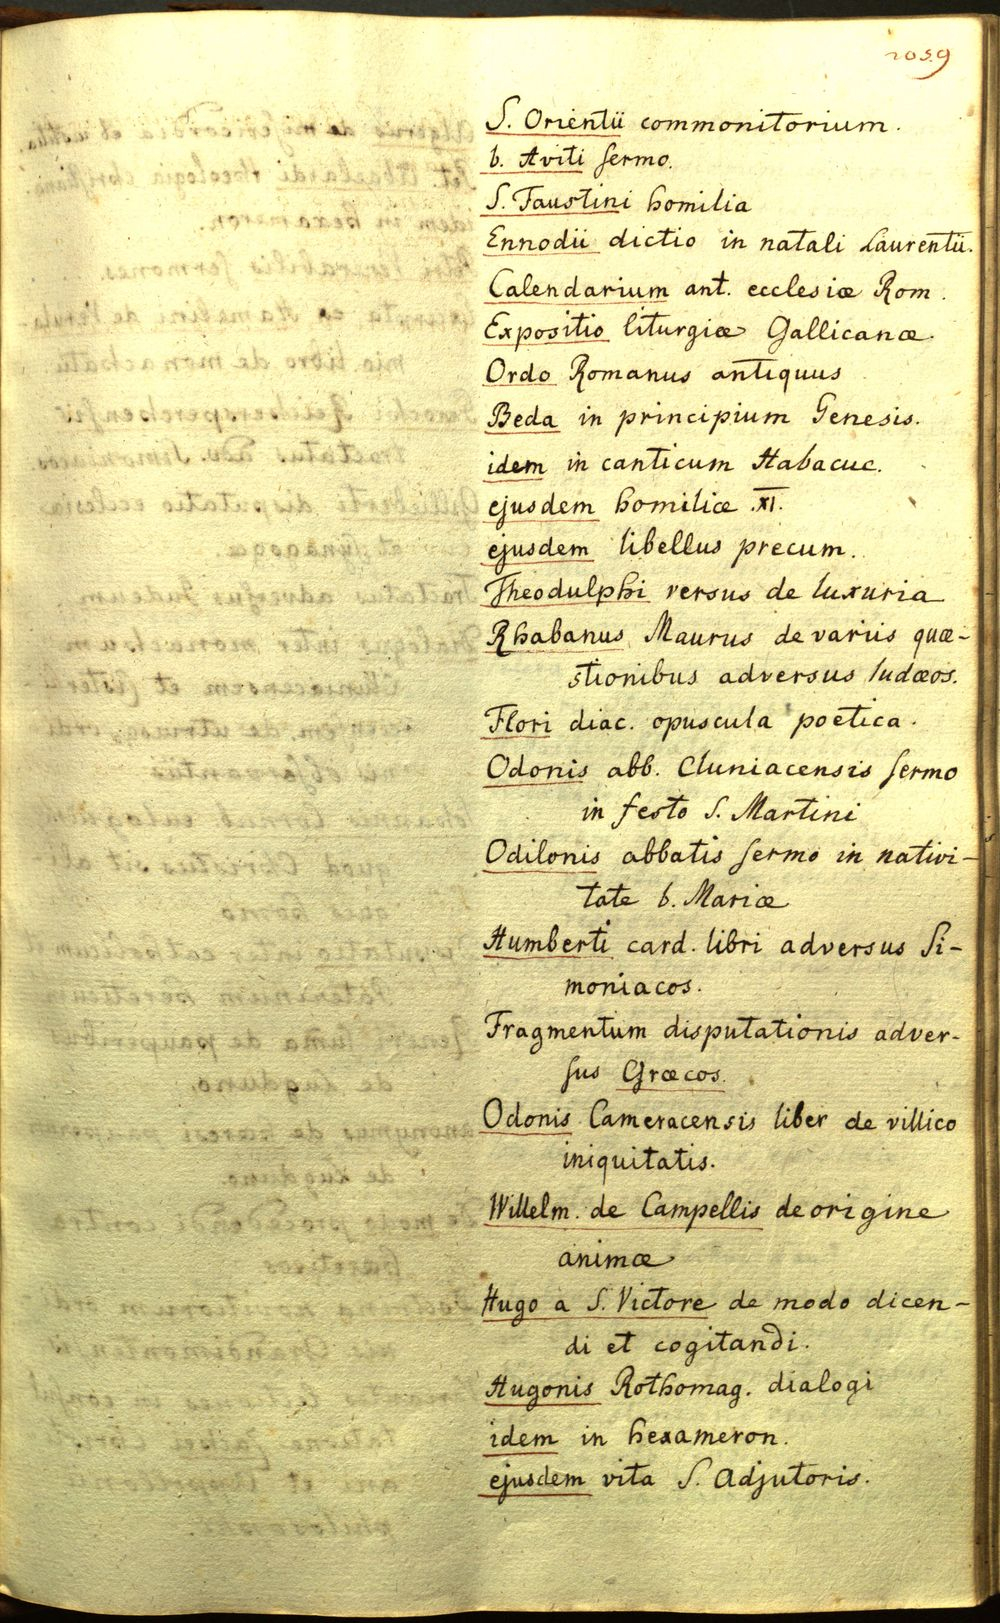 2059
S. Orientii commonitorium.
b. Aviti sermo.
S. Faustini homilia
Ennodii dictio in natali Laurentii.
Calendarium ant. ecclesiæ Rom.
Expositio liturgiæ Gallicanæ.
Ordo Romanus antiquus
Beda in principium Genesis.
idem in canticum Habacuc.
ejusdem homiliæ .XI.
ejusdem libellus precum.
Theodulphi versus de luxuria
Rhabanus Maurus de variis quæ-
stionibus adversus Iudæos.
Flori diac. opuscula poetica.
Odonis abb. Cluniacensis sermo
in festo S. Martini
Odilonis abbatis sermo in nativi-
tate b. Mariæ
Humberti card. libri adversus Si-
moniacos.
Fragmentum disputationis adver-
sus Græcos.
Odonis Cameracensis liber de villico
iniquitatis.
Willelm. de Campellis de origine
animæ
Hugo a S. Victore de modo dicen-
di et cogitandi.
Hugonis Rothomag. dialogi
idem in hexameron.
ejusdem vita S. Adjutoris.